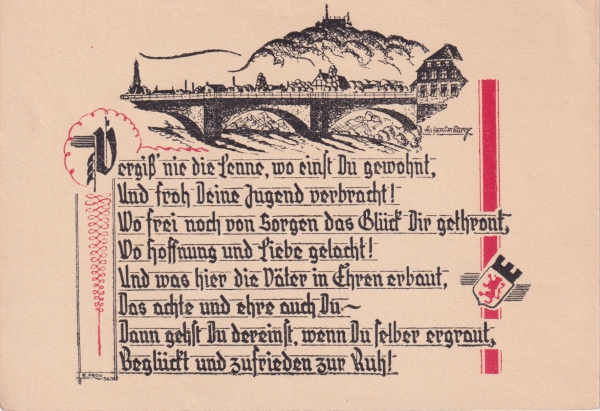 Vergiß' nie die Lenne, wo einst Du gewohnt,
Und froh Deine Jugend verbracht!
Wo frei noch von Sorgen das Glück Dir gethront,
Wo Hoffnung und Liebe gelacht!
Und was hier die Väter in Ehren erbaut,
Das achte und ehre auch Du~
Dann gehst Du dereinst, wenn Du selber ergraut,
Beglückt und zufrieden zur Ruh!
E